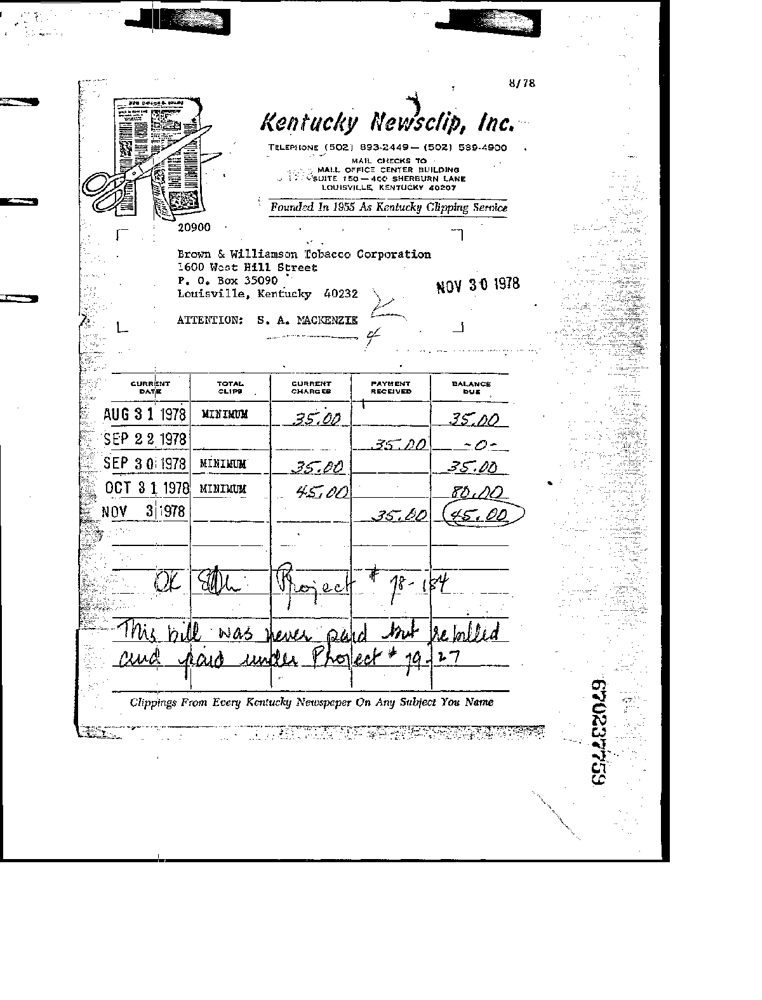 8/78
Kentucky Newsclip, Inc.
TELEPHONE (502) 893-2449 — (502) 589-4900
MAIL CHECKS TO
MALL OFFICE CENTER BUILDING
SUITE 150 — 400 SHERBURN LANE
LOUISVILLE, KENTUCKY 40207
Founded In 1955 As Kentucky Clipping Service
20900
Brown & Williamson Tobacco Corporation
1600 West Hill Street
P. O. Box 35090
Louisville, Kentucky 40232
NOV 30 1978
ATTENTION: S. A. MACKENZIE
CURRENT DATE TOTAL CLIPS CURRENT CHARGES PAYMENT RECEIVED BALANCE DUE
AUG 31 1978 MINIMUM 35.00 35.00
SEP 22 1978 35.00 -0-
SEP 30 1978 MINIMUM 35.00 35.00
OCT 31 1978 MINIMUM 45.00 80.00
NOV 3 1978 35.00 45.00
OK Project # 78-184
This bill was never paid but rebilled
and paid under Project # 79-27
Clippings From Every Kentucky Newspaper On Any Subject You Name
670237759